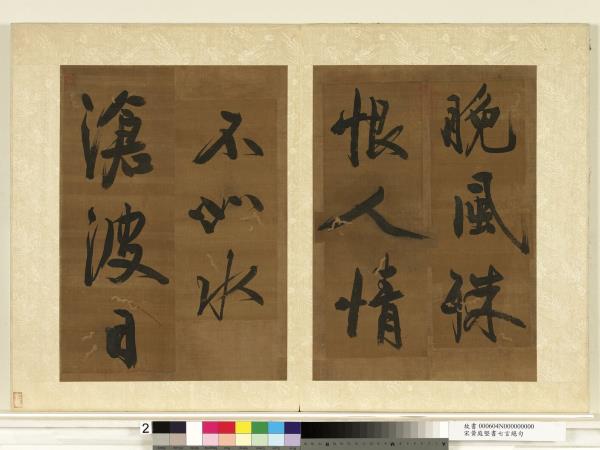 晚風殊
恨人情
不如水
滄波日
2
故書 000604N000000000
宋黃庭堅書七言絕句